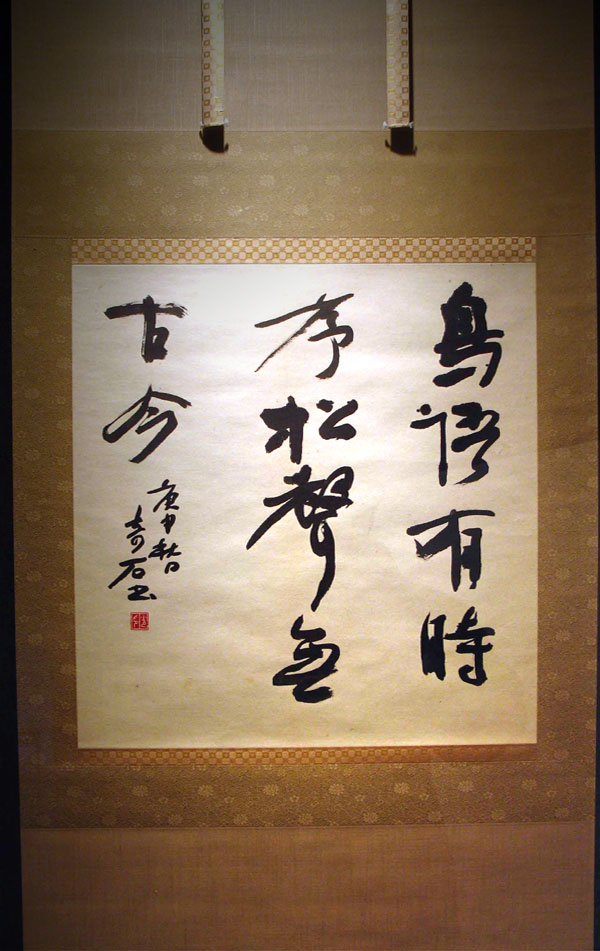 鳥語有時
序松聲無
古今
庚申秋日
奇石书